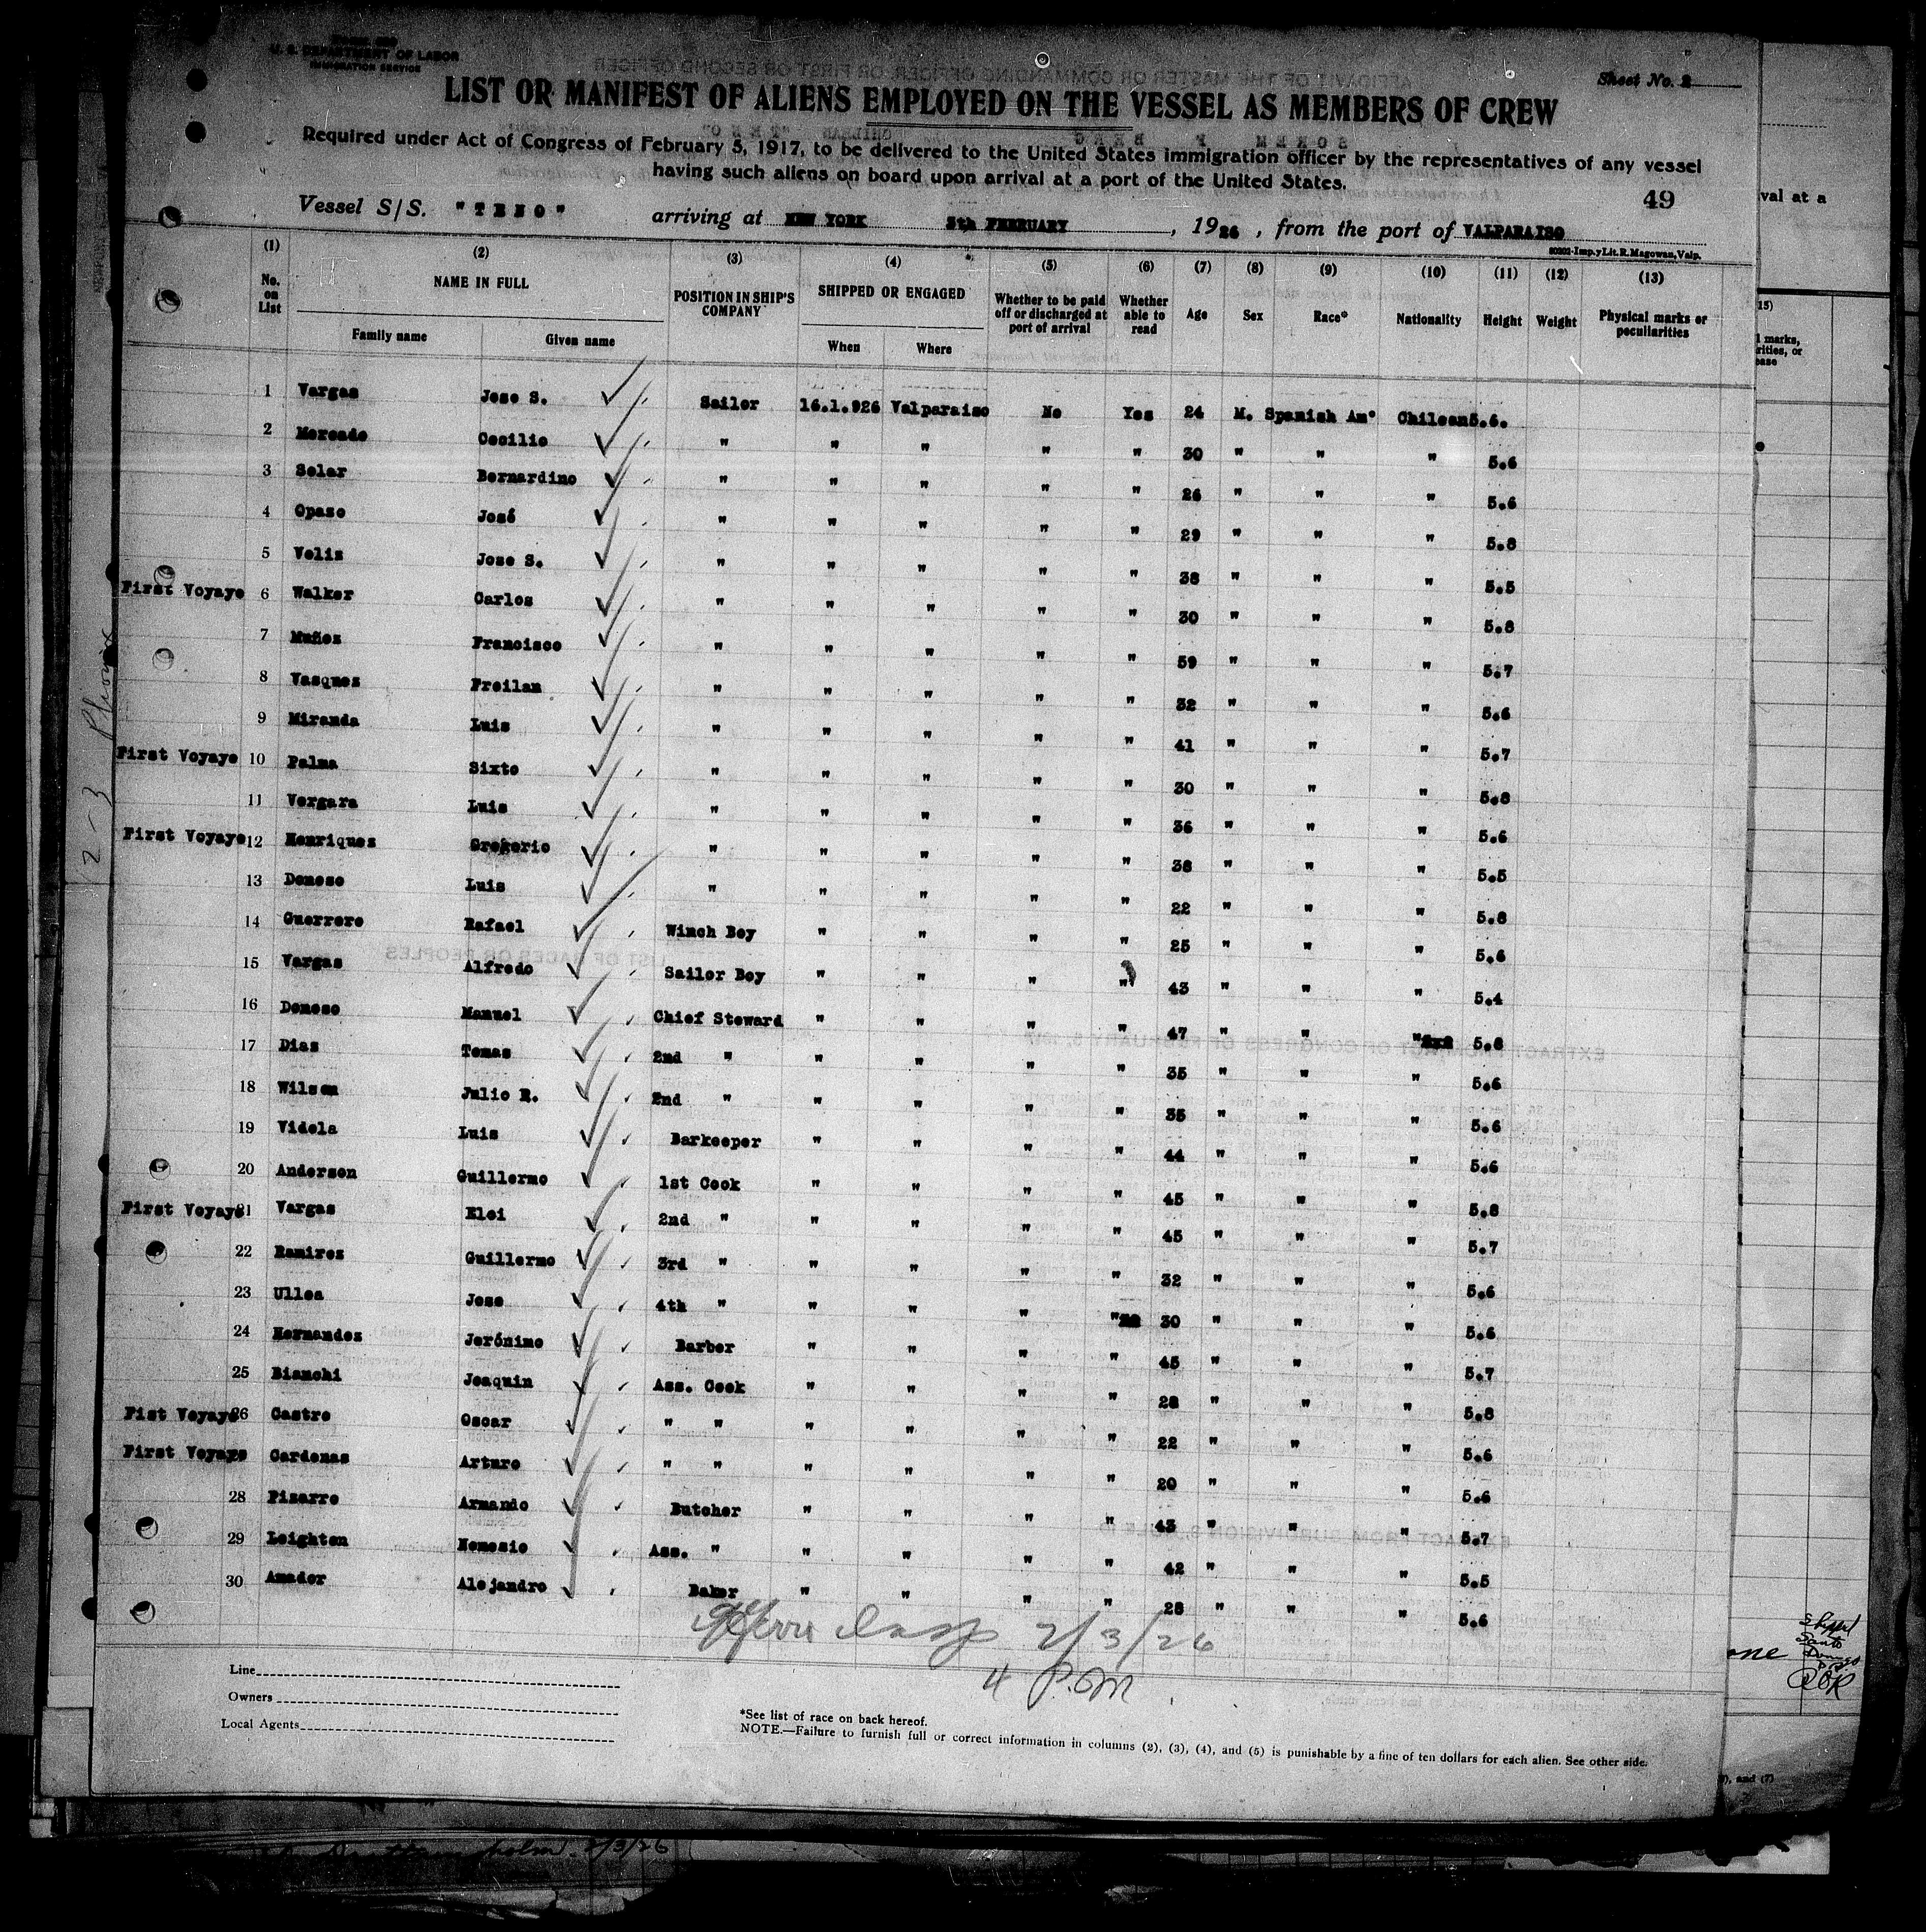 U. S. DEPARTMENT OF LABOR
IMMIGRATION SERVICE
Sheet No. 2
LIST OR MANIFEST OF ALIENS EMPLOYED ON THE VESSEL AS MEMBERS OF CREW
Required under Act of Congress of February 5, 1917, to be delivered to the United States immigration officer by the representatives of any vessel
having such aliens on board upon arrival at a port of the United States.
49
Vessel S/S. "TENO" arriving at NEW YORK 5th FEBRUARY, 1926, from the port of VALPARAISO
20202-Imp.y Lit.R.Magowan,Valp.
(1) (2) (3) (4) (5) (6) (7) (8) (9) (10) (11) (12) (13)
No. on List NAME IN FULL POSITION IN SHIP'S COMPANY SHIPPED OR ENGAGED Whether to be paid off or discharged at port of arrival Whether able to read Age Sex Race* Nationality Height Weight Physical marks or peculiarities
Family name Given name When Where
1 Vargas Jose S. Sailor 16.1.926 Valparaiso No Yes 24 M. Spanish Am° Chilean 5.6.
2 Mercado Cecilio " " " " " 30 " " " 5.6
3 Solar Bernardino " " " " " 26 " " " 5.6
4 Opazo José " " " " " 29 " " " 5.8
5 Veliz Jose S. " " " " " 38 " " " 5.5
First Voyaye 6 Walker Carlos " " " " " 30 " " " 5.8
7 Muñoz Francisco " " " " " 59 " " " 5.7
8 Vasquez Freilan " " " " " 32 " " " 5.6
9 Miranda Luis " " " " " 41 " " " 5.7
First Voyaye 10 Palma Sixto " " " " " 30 " " " 5.8
11 Vergara Luis " " " " " 36 " " " 5.6
First Voyaye 12 Henriquez Gregorio " " " " " 38 " " " 5.5
13 Donoso Luis " " " " " 22 " " " 5.8
14 Guerrero Rafael Winch Boy " " " " 25 " " " 5.6
15 Vargas Alfredo Sailor Boy " " " " 43 " " " 5.4
16 Donoso Manuel Chief Steward " " " " 47 " " " 5.8
17 Diaz Tomas 2nd " " " " " 35 " " " 5.6
18 Wilson Julio R. 2nd " " " " " 35 " " " 5.6
19 Videla Luis Barkeeper " " " " 44 " " " 5.6
20 Anderson Guillermo 1st Cook " " " " 45 " " " 5.8
First Voyaye 21 Vargas Eloi 2nd " " " " " 45 " " " 5.7
22 Ramirez Guillermo 3rd " " " " " 32 " " " 5.6
23 Ulloa Jose 4th " " " " " 30 " " " 5.6
24 Hernandez Jerónimo Barber " " " " 45 " " " 5.7
25 Bianchi Joaquin Ass. Cook " " " " 28 " " " 5.8
Fist Voyaye 26 Castro Oscar " " " " " " 22 " " " 5.6
First Voyaye Cardenas Arturo " " " " " " 20 " " " 5.6
28 Pizarro Armando Butcher " " " " 43 " " " 5.7
29 Leighton Nemesio Ass. " " " " " 42 " " " 5.5
30 Amador Alejandro Baker " " " " 28 " " " 5.6
2/3/26
4 P.M.
Line
Owners
Local Agents
*See list of race on back hereof.
NOTE.—Failure to furnish full or correct information in columns (2), (3), (4), and (5) is punishable by a fine of ten dollars for each alien. See other side.
val at a
15)
marks,
rities, or
ease
Shipped
Santo
Domingo
), and (7)
2/3/26